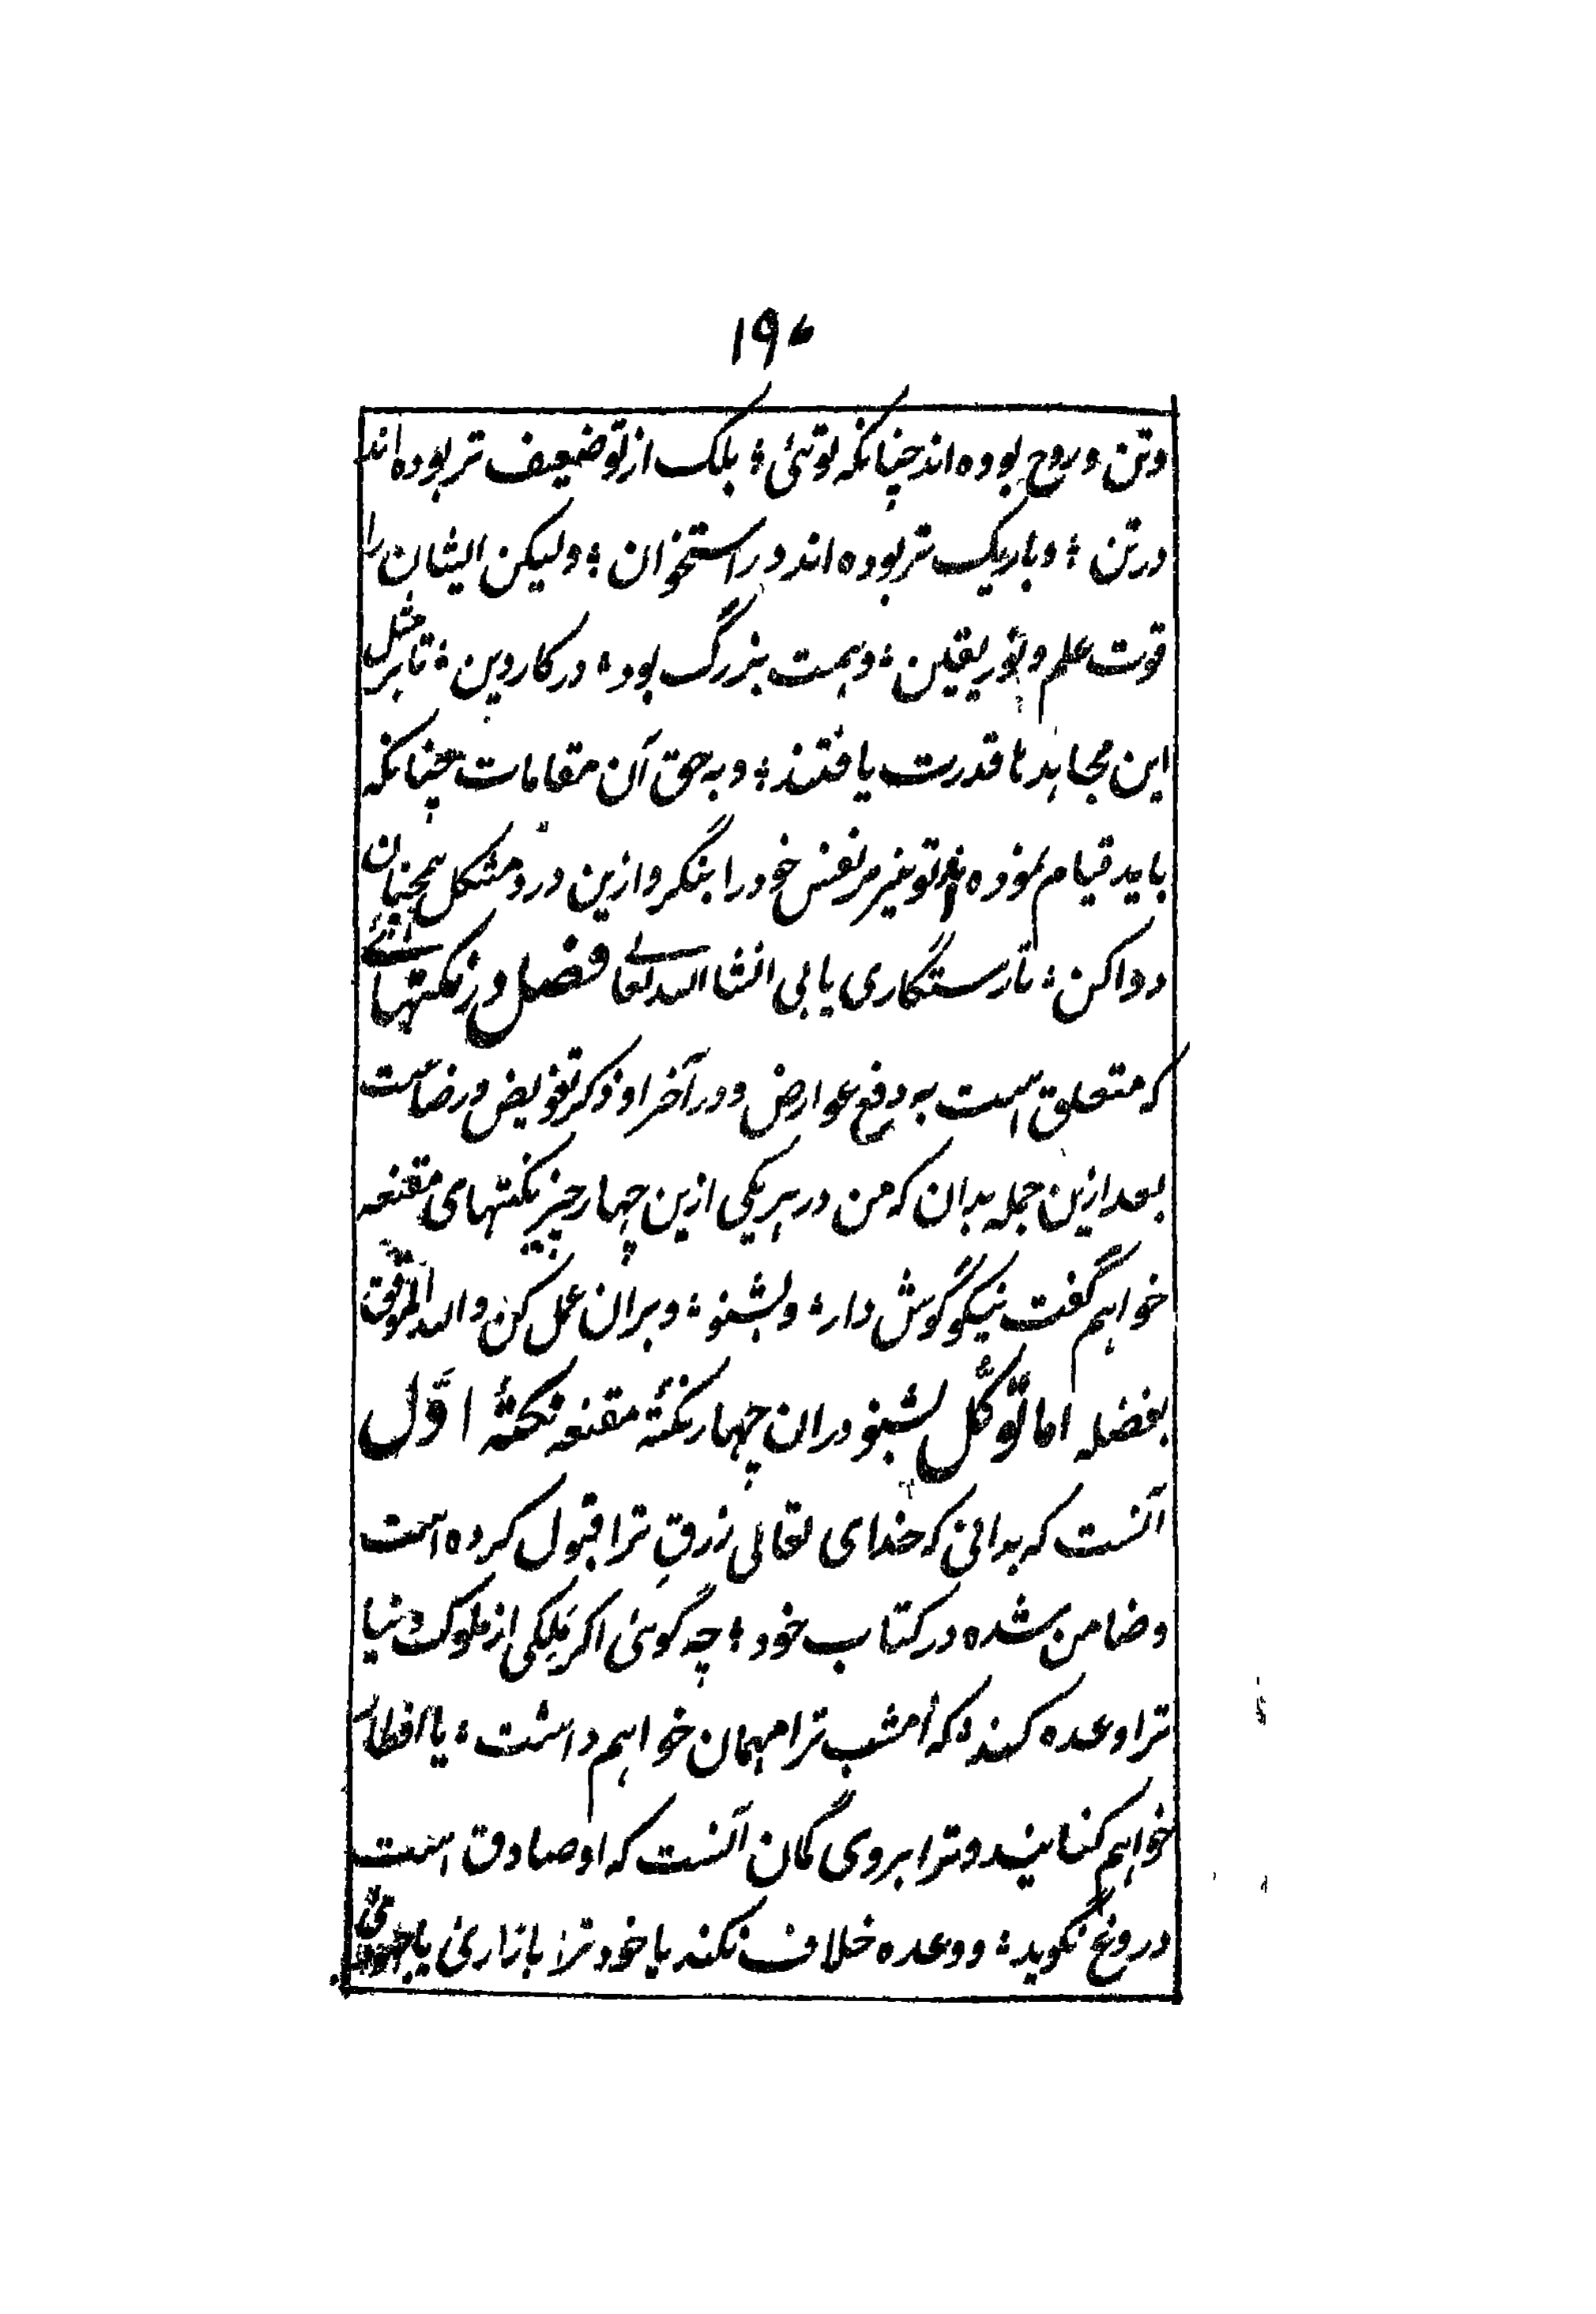 ۱۹۰
وتن و روح بوده اند چنانکه توئی ؛ بلک از تو ضعیف تر بوده اند
در تن ؛ و باریک تر بوده اند در استخوان ؛ ولیکن ایشان را
قوت علم و نور یقین ؛ و همت بزرگ بود ؛ در کار دین ؛ تا بر مثل
این مجاهدها قدرت یافتند ؛ و به حق آن مقامات چنانکه
باید قیام نموده اند تو نیز مر نفس خود را بنگر و ازین درد مشکل همچنان
دوا کن ؛ تا رستگاری یابی انشا الله تعالی فصل در نکتهائے
که متعلق است به دفع عوارض و در آخر او ذکر تفویض و رضاست
بعد ازین جمله بدان که من در هر یکی ازین چهار چیز نکتهای مقنعه
خواهم گفت نیکو گوش دار ؛ و بشنو ؛ و بران عمل کن والله الموفق
بفضله اما توکّل بشنو دران چهار نکتۀ مقنعه نکتۀ اوّل
آنست که بدانی که خدای تعالی رزقِ ترا قبول کرده است
و ضامن شده در کتاب خود ؛ چه گوئی اکر مَلِکی از ملوک دنیا
ترا وعده کند ؛ که امشب ترا مهمان خواهم داشت ؛ یا افطار
خواهم کنانید و ترا بروی گمان آنست که او صادق است
دروغ نگوید ؛ و وعده خلاف نکند یا خود ترا بازاری یا